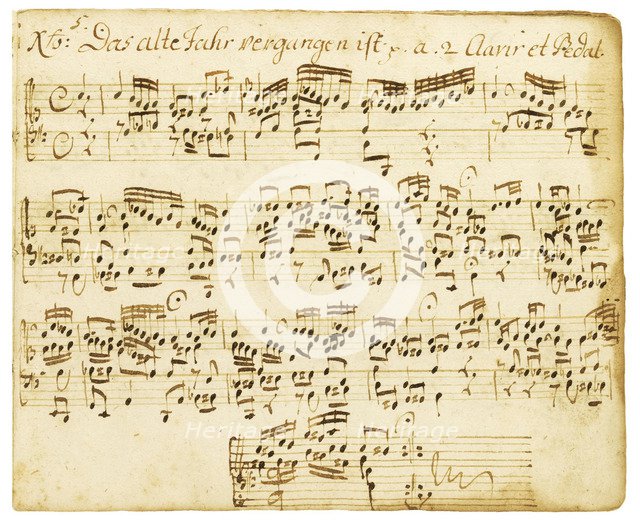 5.
Xto: Das alte Jahr vergangen ist p. a. 2 Clavir et Pedal.
Heritage Heritage
Heritage Heritage
Heritage Heritage